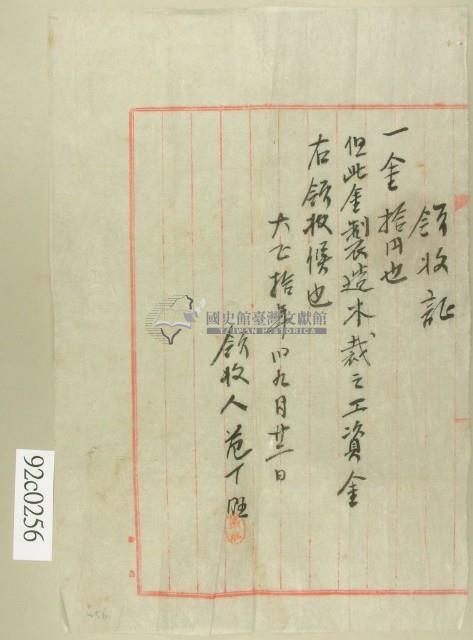 領收証
一金拾円也
但此金製造木裁之工資金
右領收候也
大正拾年旧九月廿一日
領收人范丁旺
國史館臺灣文獻館
TAIWAN HISTORICA
92c0256